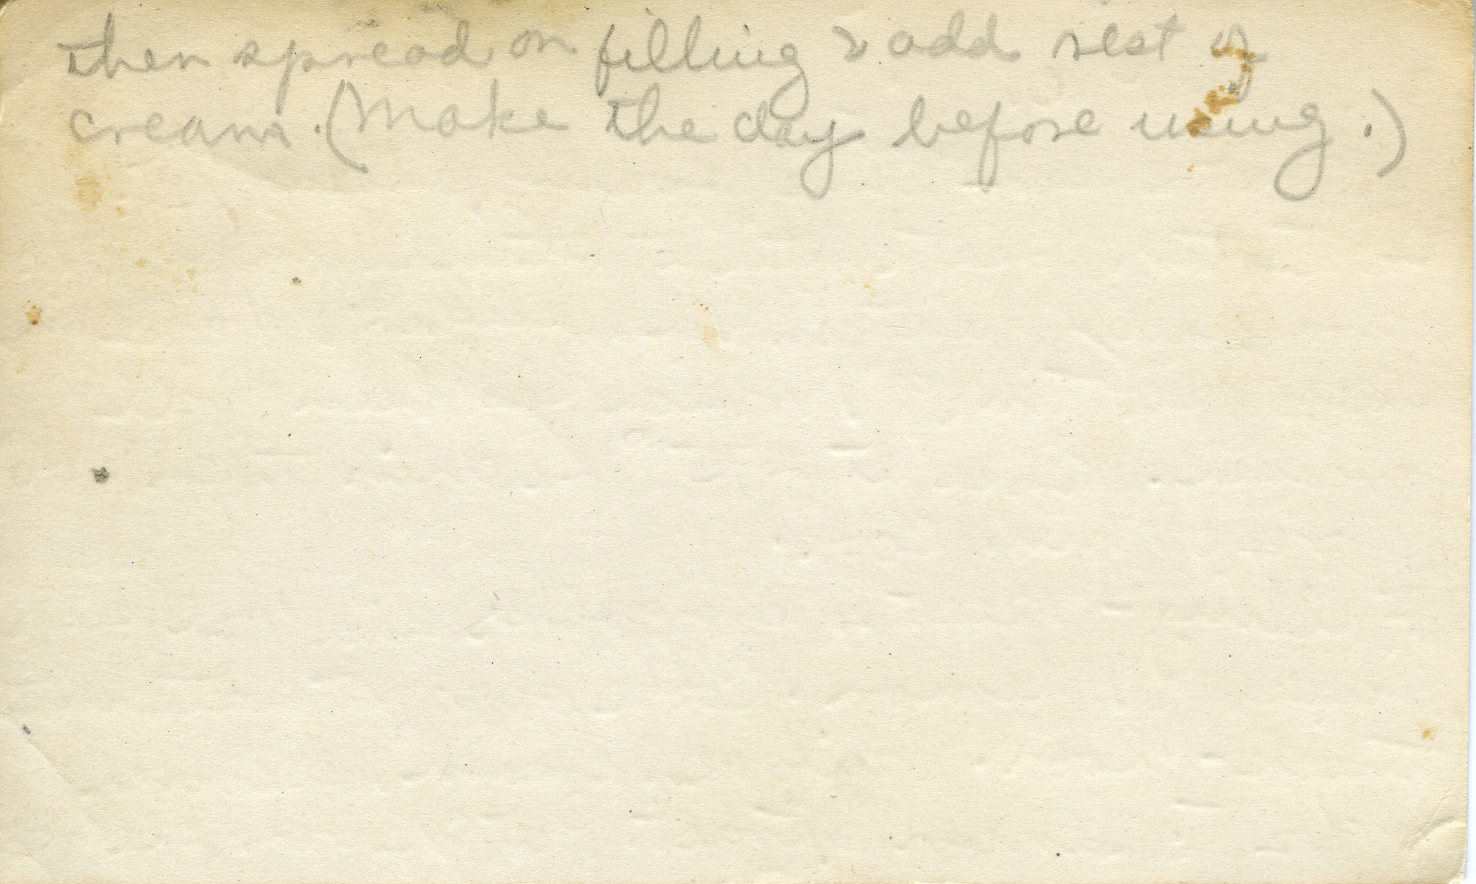 then spread on filling & add rest of
cream. (Make the day before using.)